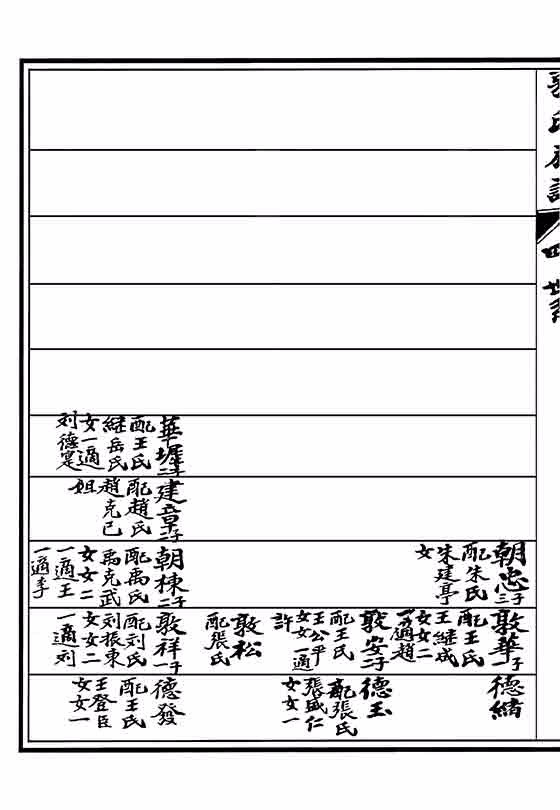 氏族譜
四世
朝忠三子
配朱氏
朱建亭
女
敦華子
配王氏
王継成
女女二
一適趙
德緒
敦安子
配王氏
王公平
女女一適
許
德玉
配張氏
張盛仁
女女一
敦松
配張氏
華墀二子
配王氏
継岳氏
女一適
刘德寔
建章子
配趙氏
趙克己
姐
朝棟二子
配禹氏
禹克武
女女二
一適王
一適李
敦祥一子
配刘氏
刘振東
女女二
一適刘
德發
配王氏
王登臣
女女一